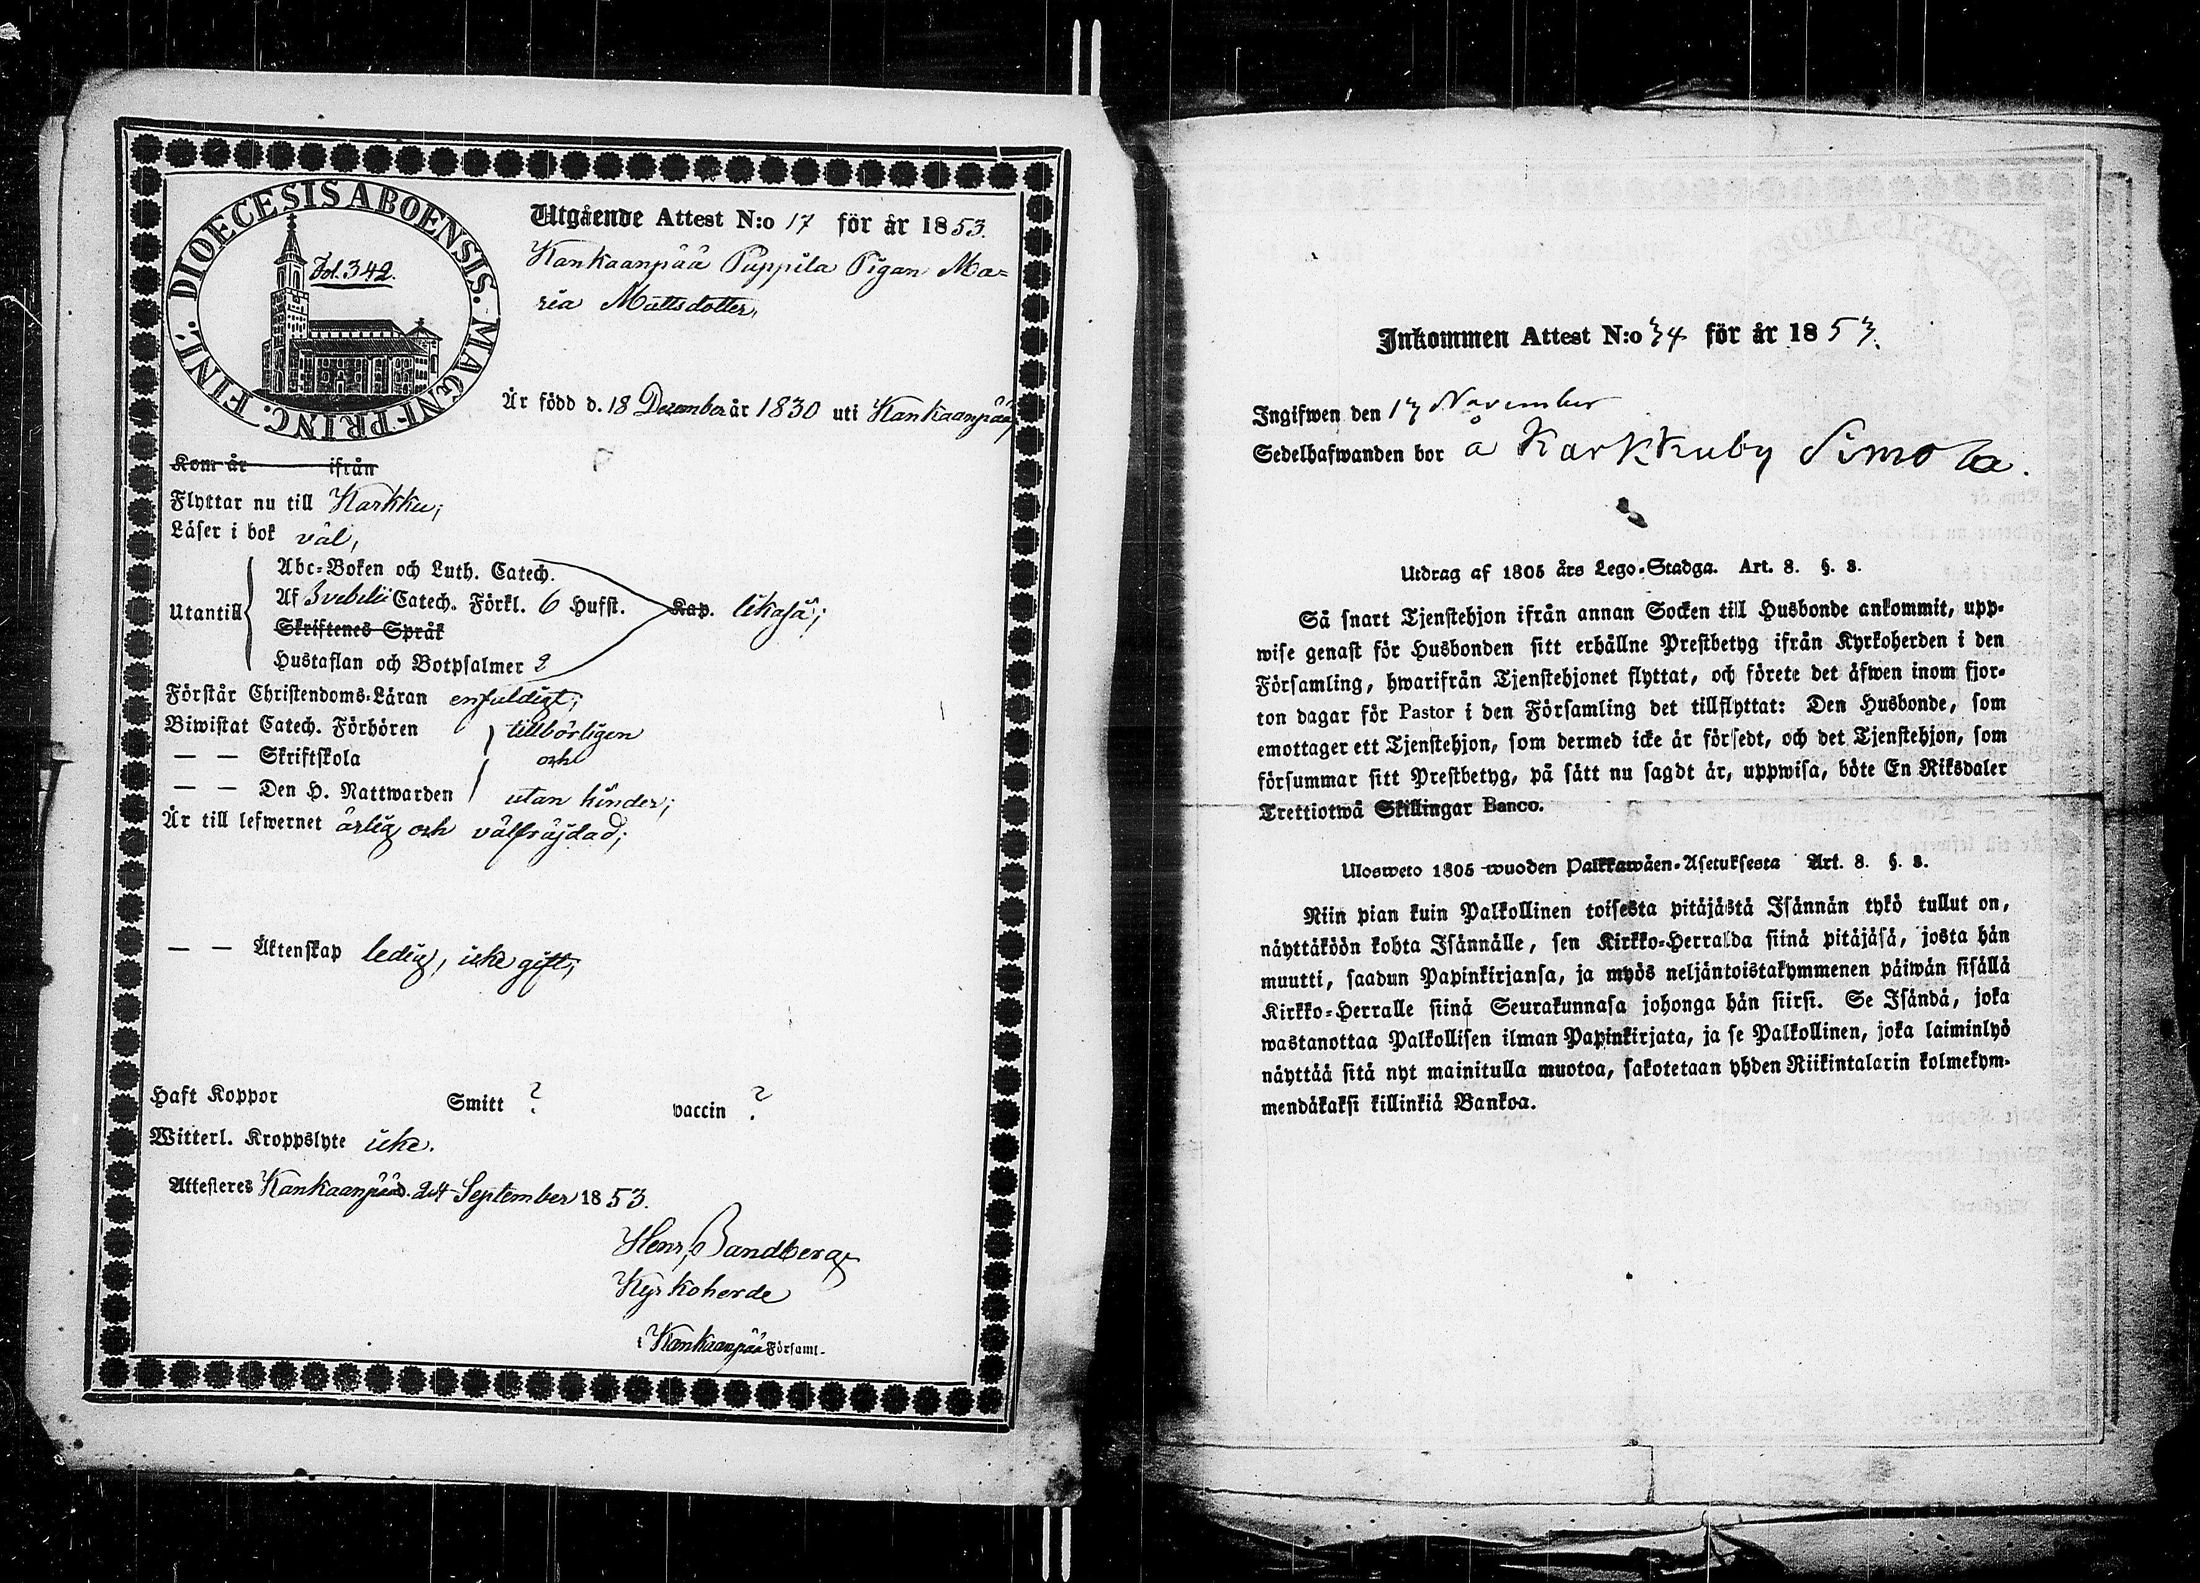 DIOECESIS ABOENSIS. MAGNI-PRINC. FINL.
Fol. 342.
Utgående Attest N:o 17 för år 1853.
Kankaanpää Puppila Pigan Ma=
ria Mattsdotter,
Är född d. 18 December år 1830 uti Kankaanpää,
Kom år ifrån
Flyttar nu till Karkku;
Läser i bok väl,
Utantill
Abc-Boken och Luth. Catech.
Af Svebelii Catech. Förkl. 6 Hufst. Kap. likaså;
Skriftenes Språk
Hustaflan och Botpsalmer 2
Förstår Christendoms-Läran enfuldigt;
Biwistat Catech. Förhören tillbörligen
— — Skriftskola och
— — Den H. Nattwarden utan hinder;
Är till lefwernet ärlig och välfräjdad;
— — Äktenskap ledig, icke gift;
Haft Koppor Smitt ? vaccin ?
Witterl. Kroppslyte icke.
Attesteres Kankaanpää d. 24 September 1853.
Henr. Sandberg
Kyrkoherde
i Kankaanpää Församl.
Inkommen Attest N:o 34 för år 1853.
Ingifwen den 17 November
Sedelhafwanden bor å Karkkuby Simola.
Utdrag af 1805 års Lego-Stadga. Art. 8. §. 8.
Så snart Tjenstehjon ifrån annan Socken till Husbonde ankommit, upp-
wise genast för Husbonden sitt erhållne Prestbetyg ifrån Kyrkoherden i den
Församling, hwarifrån Tjenstehjonet flyttat, och förete det äfwen inom fjor-
ton dagar för Pastor i den Församling det tillflyttat: Den Husbonde, som
emottager ett Tjenstehjon, som dermed icke är försedt, och det Tjenstehjon, som
försummar sitt Prestbetyg, på sätt nu sagdt är, uppwisa, böte En Riksdaler
Trettiotwå Skillingar Banco.
Ulosweto 1805 wuoden Palkkawäen-Asetuksesta Art. 8. §. 8.
Niin pian kuin Palkollinen toisesta pitäjästä Isännän tykö tullut on,
näyttäköön kohta Isännälle, sen Kirkko-Herralda siinä pitäjäsä, josta hän
muutti, saadun Papinkirjansa, ja myös neljäntoistakymmenen päiwän sisällä
Kirkko-Herralle siinä Seurakunnasa johonga hän siirsi. Se Isändä, joka
wastanottaa Palkollisen ilman Papinkirjata, ja se Palkollinen, joka laiminlyö
näyttää sitä nyt mainitulla muotoa, sakotetaan yhden Riikintalarin kolmekym-
mendäkaksi killinkiä Bankoa.